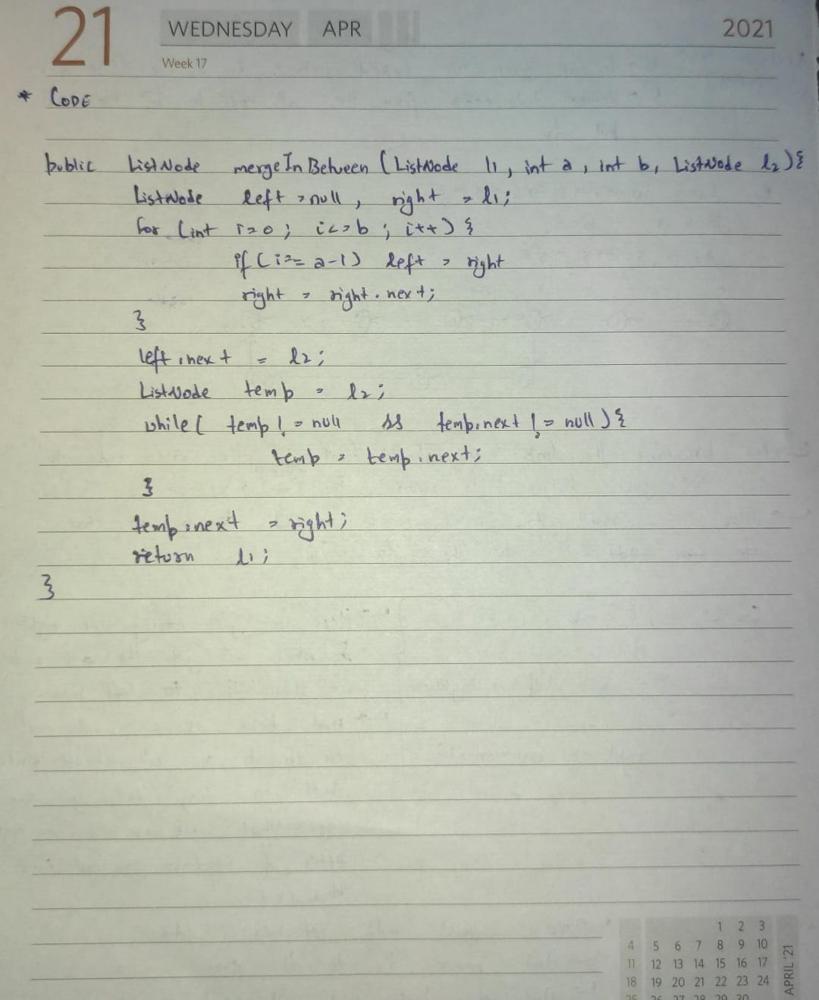 21 WEDNESDAY APR 2021
Week 17
* CODE
public ListNode mergeInBetween (ListNode l1, int a, int b, ListNode l2){
ListNode left = null, right = l1;
for (int i=0; i<=b; i++) {
if(i== a-1) left = right
right = right.next;
}
left.next = l2;
ListNode temp = l2;
while( temp != null && temp.next != null){
temp = temp.next;
}
temp.next = right;
return l1;
}
1 2 3
4 5 6 7 8 9 10
11 12 13 14 15 16 17
18 19 20 21 22 23 24
25 26 27 28 29 30
APRIL '21